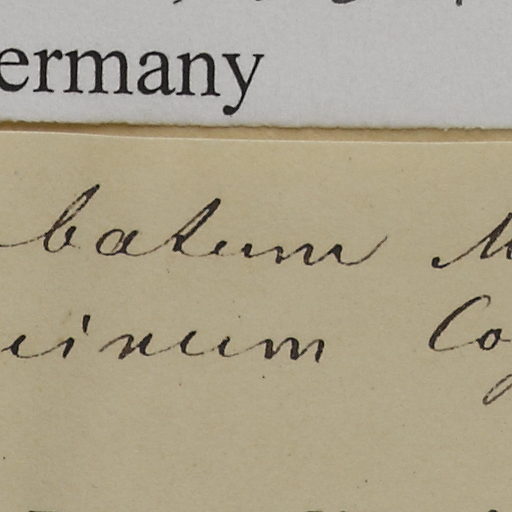 ermany
batum M
inum Co